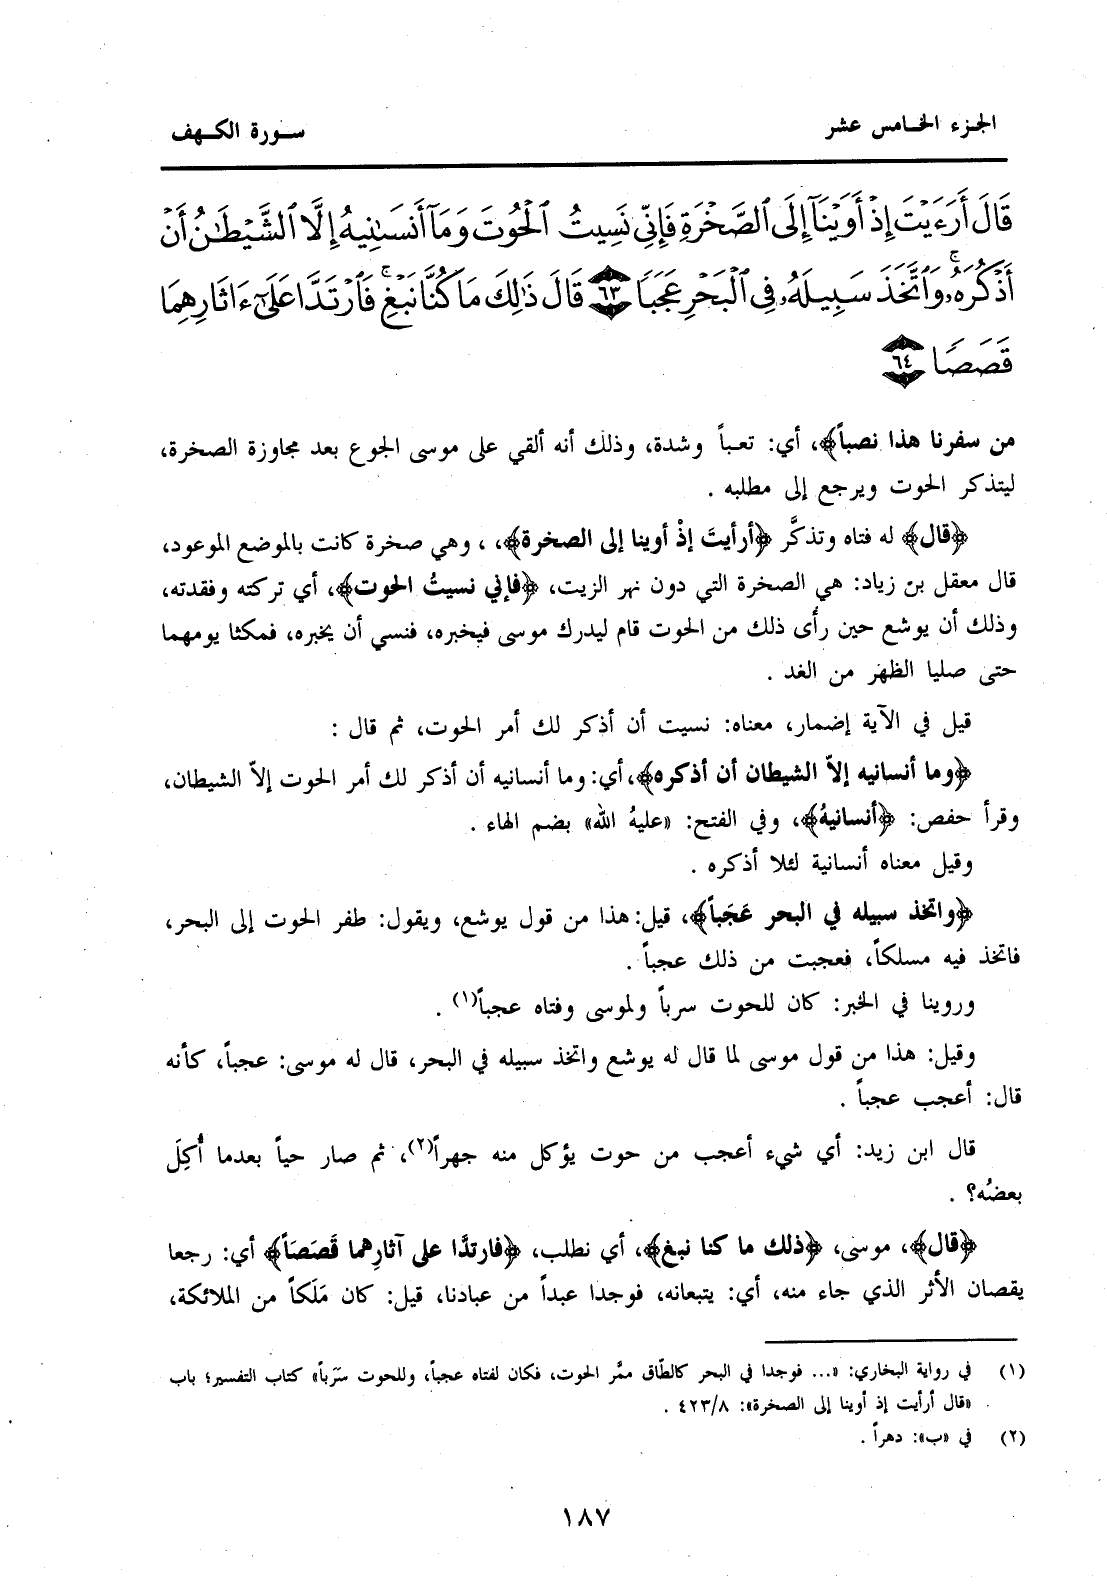 الجزء الخامس عشر
سورة الكهف
قَالَ أَرَءَيْتَ إِذْ أَوَيْنَآ إِلَى ٱلصَّخْرَةِ فَإِنِّى نَسِيتُ ٱلْحُوتَ وَمَآ أَنسَىٰنِيهُ إِلَّا ٱلشَّيْطَٰنُ أَنْ
أَذْكُرَهُۥۚ وَٱتَّخَذَ سَبِيلَهُۥ فِى ٱلْبَحْرِ عَجَبًا ٦٣ قَالَ ذَٰلِكَ مَا كُنَّا نَبْغِۚ فَٱرْتَدَّا عَلَىٰٓ ءَاثَارِهِمَا
قَصَصًا ٦٤
من سفرنا هذا نصباً﴾، أي: تعباً وشدة، وذلك أنه ألقي على موسى الجوع بعد مجاوزة الصخرة،
ليتذكر الحوت ويرجع إلى مطلبه .
﴿قال﴾ له فتاه وتذكَّر ﴿أرأيتَ إذْ أوينا إلى الصخرة﴾، ، وهي صخرة كانت بالموضع الموعود،
قال معقل بن زياد: هي الصخرة التي دون نهر الزيت، ﴿فإني نسيتُ الحوت﴾، أي تركته وفقدته،
وذلك أن يوشع حين رأى ذلك من الحوت قام ليدرك موسى فيخبره، فنسي أن يخبره، فمكثا يومهما
حتى صليا الظهر من الغد .
قيل في الآية إضمار، معناه: نسيت أن أذكر لك أمر الحوت، ثم قال :
﴿وما أنسانيه إلاّ الشيطان أن أذكره﴾، أي: وما أنسانيه أن أذكر لك أمر الحوت إلاّ الشيطان،
وقرأ حفص: ﴿أنسانيهُ﴾، وفي الفتح: «عليهُ الله» بضم الهاء .
وقيل معناه أنسانية لئلا أذكره .
﴿واتخذ سبيله في البحر عَجَباً﴾، قيل: هذا من قول يوشع، ويقول: طفر الحوت إلى البحر،
فاتخذ فيه مسلكاً، فعجبت من ذلك عجباً .
وروينا في الخبر: كان للحوت سرباً ولموسى وفتاه عجباً(١) .
وقيل: هذا من قول موسى لما قال له يوشع واتخذ سبيله في البحر، قال له موسى: عجباً، كأنه
قال: أعجب عجباً .
قال ابن زيد: أي شيء أعجب من حوت يؤكل منه جهراً(٢)، ثم صار حياً بعدما أُكِلَ
بعضُه؟ .
﴿قال﴾، موسى، ﴿ذلك ما كنا نبغ﴾، أي نطلب، ﴿فارتدَّا على آثارِهما قَصَصَاً﴾ أي: رجعا
يقصان الأثر الذي جاء منه، أي: يتبعانه، فوجدا عبداً من عبادنا، قيل: كان مَلَكاً من الملائكة،
(١) في رواية البخاري: «... فوجدا في البحر كالطَّاق ممَّر الحوت، فكان لفتاه عجباً، وللحوت سَرَباً» كتاب التفسير؛ باب
«قال أرأيت إذ أوينا إلى الصخرة»: ٤٢٣/٨ .
(٢) في «ب»: دهراً .
١٨٧